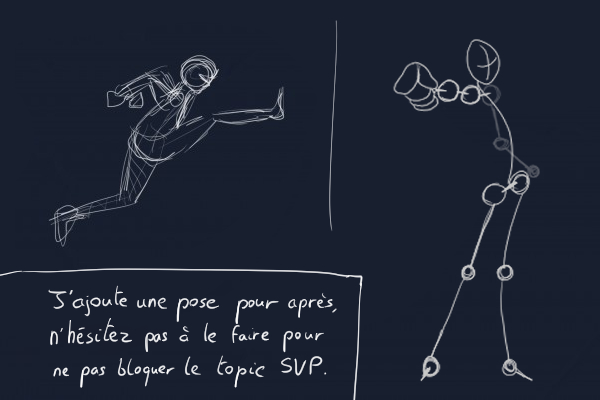 J'ajoute une pose pour après,
n'hésitez pas à le faire pour
ne pas bloquer le topic SVP.